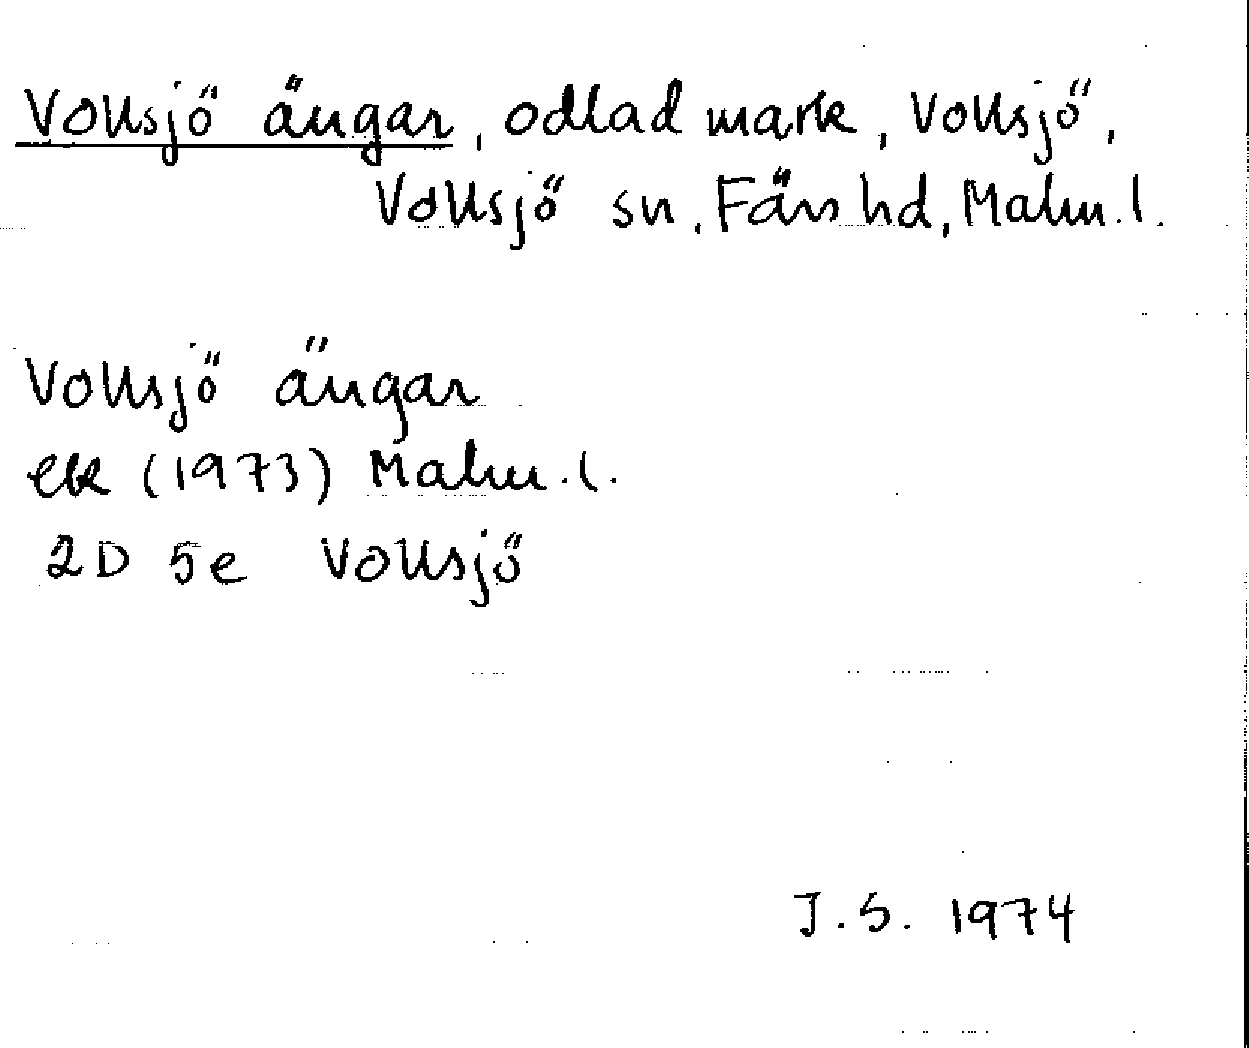 Vollsjö ängar, odlad mark, Vollsjö,
Vollsjö sn, Färs hd, Malm. l.
Vollsjö ängar
ek (1973) Malm. l.
2D 5e Vollsjö
J.S. 1974